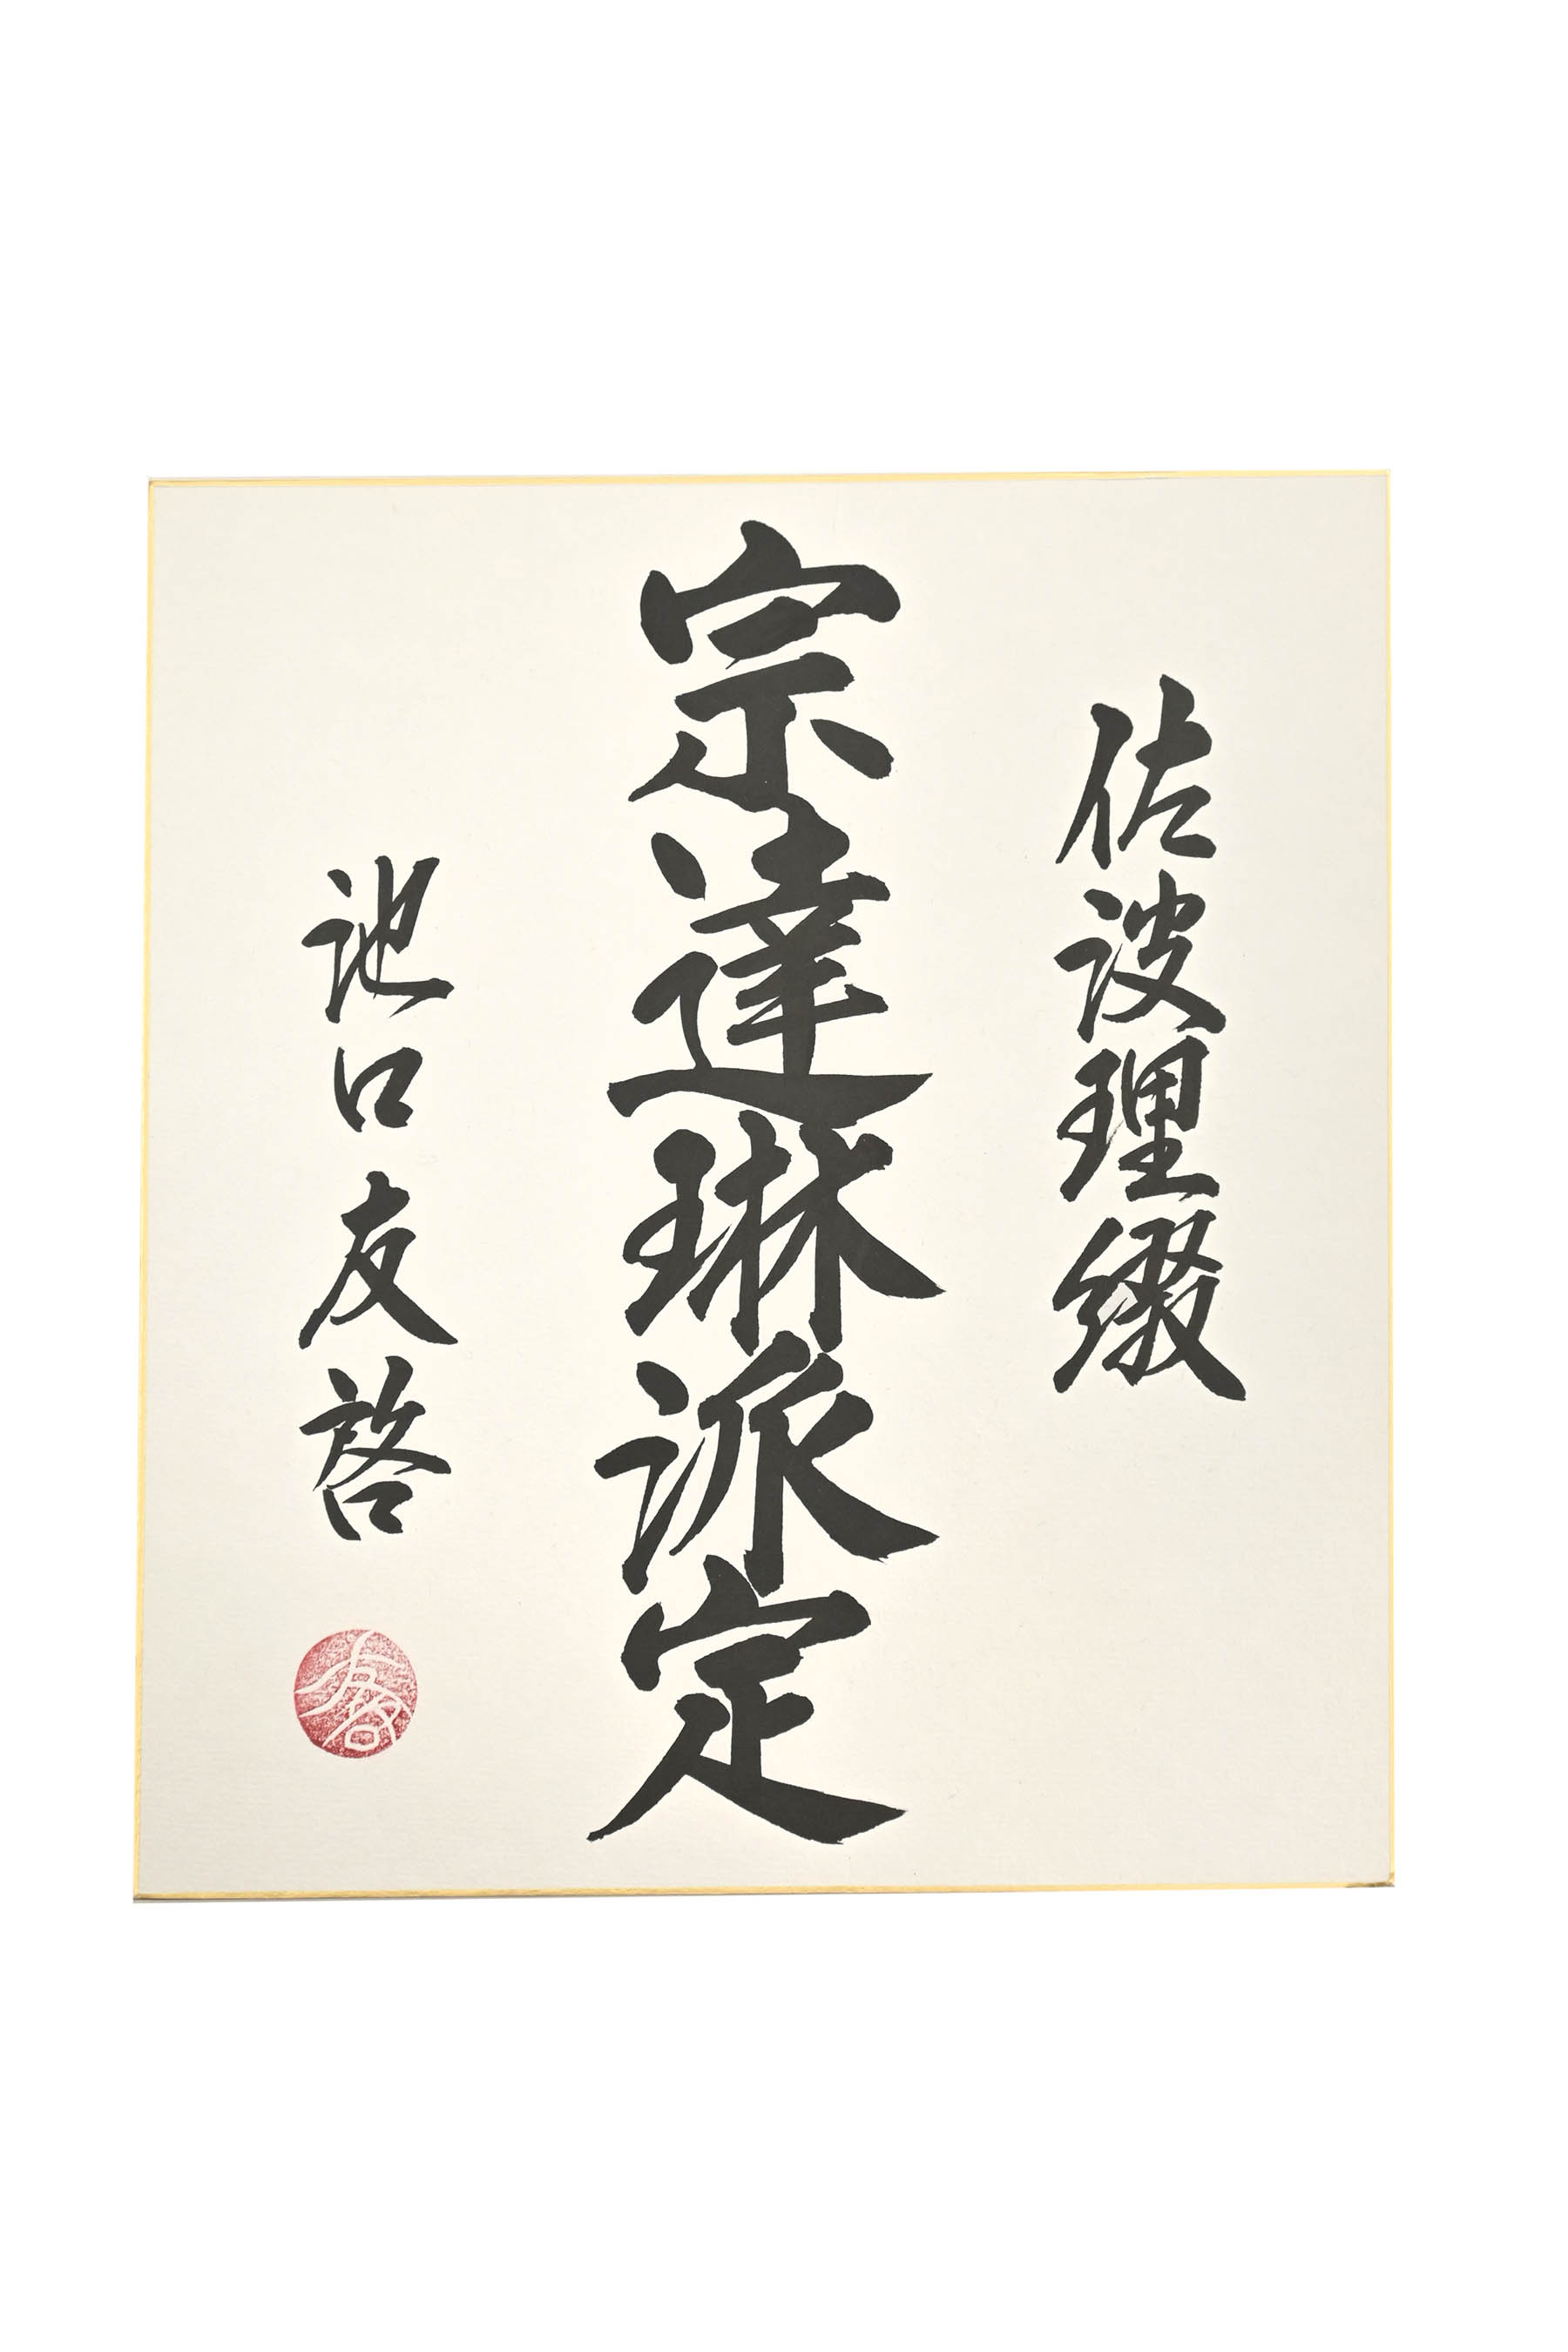 佐波理綴
宗達琳派定
池口友啓